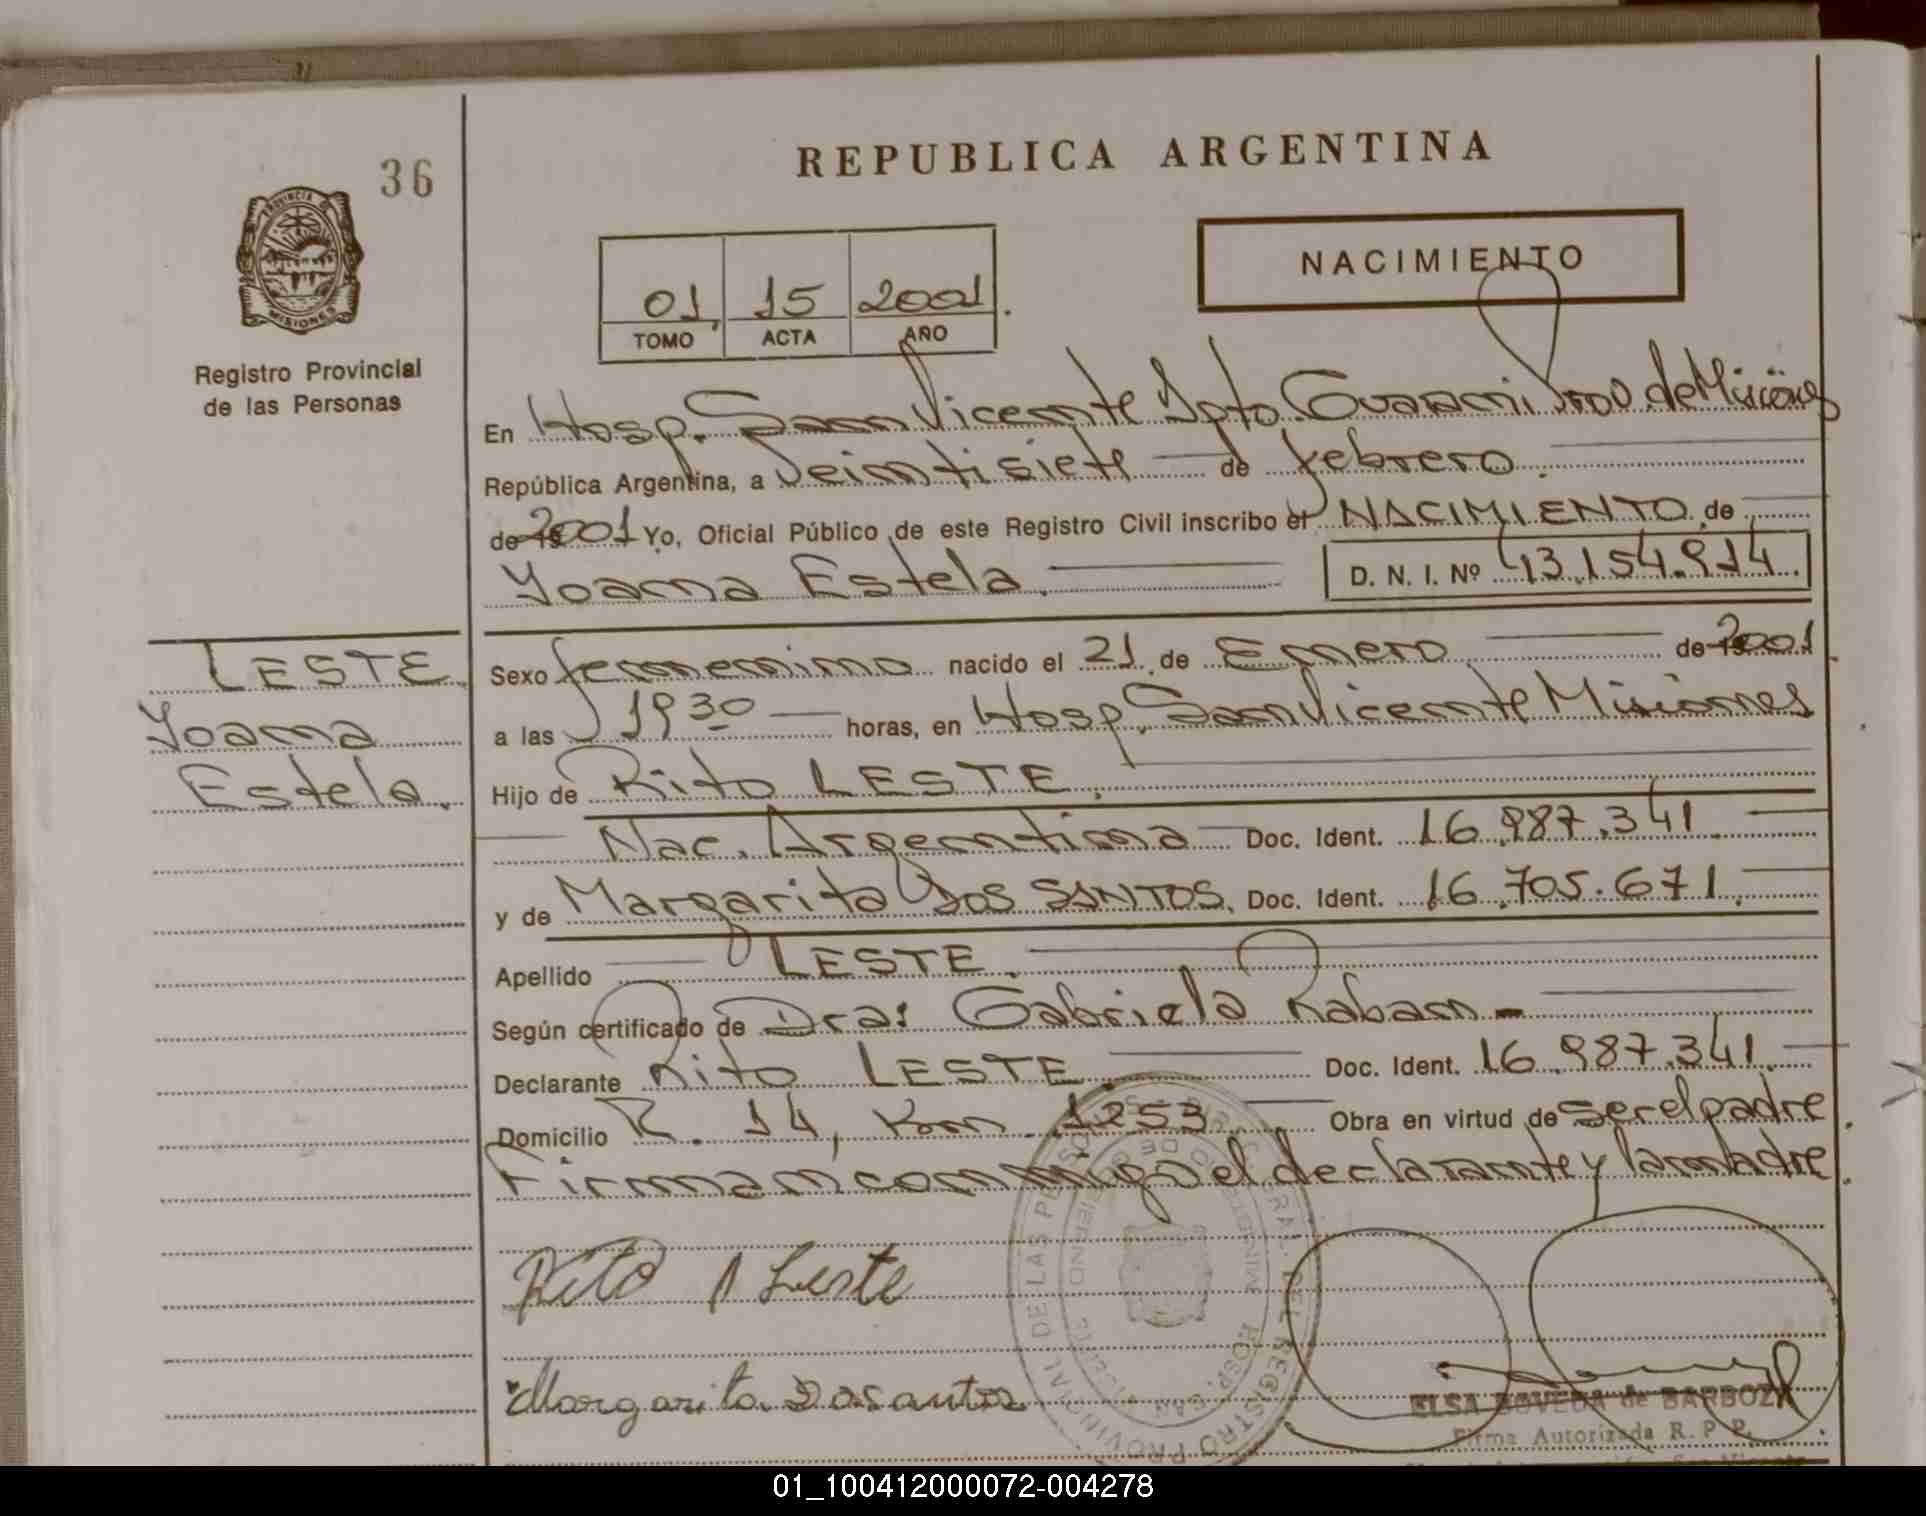 REPUBLICA ARGENTINA
36
PROVINCIA DE
MISIONES
Registro Provincial
de las Personas
01 15 2001
TOMO ACTA AÑO
NACIMIENTO
En Hosp. San Vicente Dpto. Guarani Prov. de Misiones
República Argentina, a Veintisiete de febrero.
de 2001 Yo, Oficial Público de este Registro Civil inscribo el NACIMIENTO de
Yoana Estela. D. N. I. Nº 43.154.914
LESTE
Yoana
Estela.
Sexo femenino nacido el 21 de Enero de 2001
a las 19 30 horas, en Hosp. San Vicente Misiones
Hijo de Rito LESTE.
Nac. Argentina Doc. Ident. 16.987.341
y de Margarita DOS SANTOS. Doc. Ident. 16.705.671.
Apellido LESTE.
Según certificado de Dra: Gabriela Raban -
Declarante Rito LESTE Doc. Ident. 16.987.341
Domicilio R. 14, Km 1253 Obra en virtud de ser el padre.
Firman conmigo el declarante y la madre.
Rito A Leste
Margarita Dosantos
ELSA BOVEDA de BARBOZA
Firma Autorizada R. P. P.
01_100412000072-004278